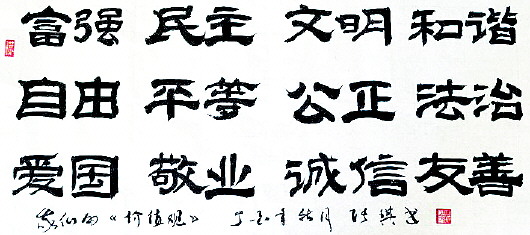 富强 民主 文明 和谐
自由 平等 公正 法治
爱国 敬业 诚信 友善
我们的《价值观》 丁酉年秋月